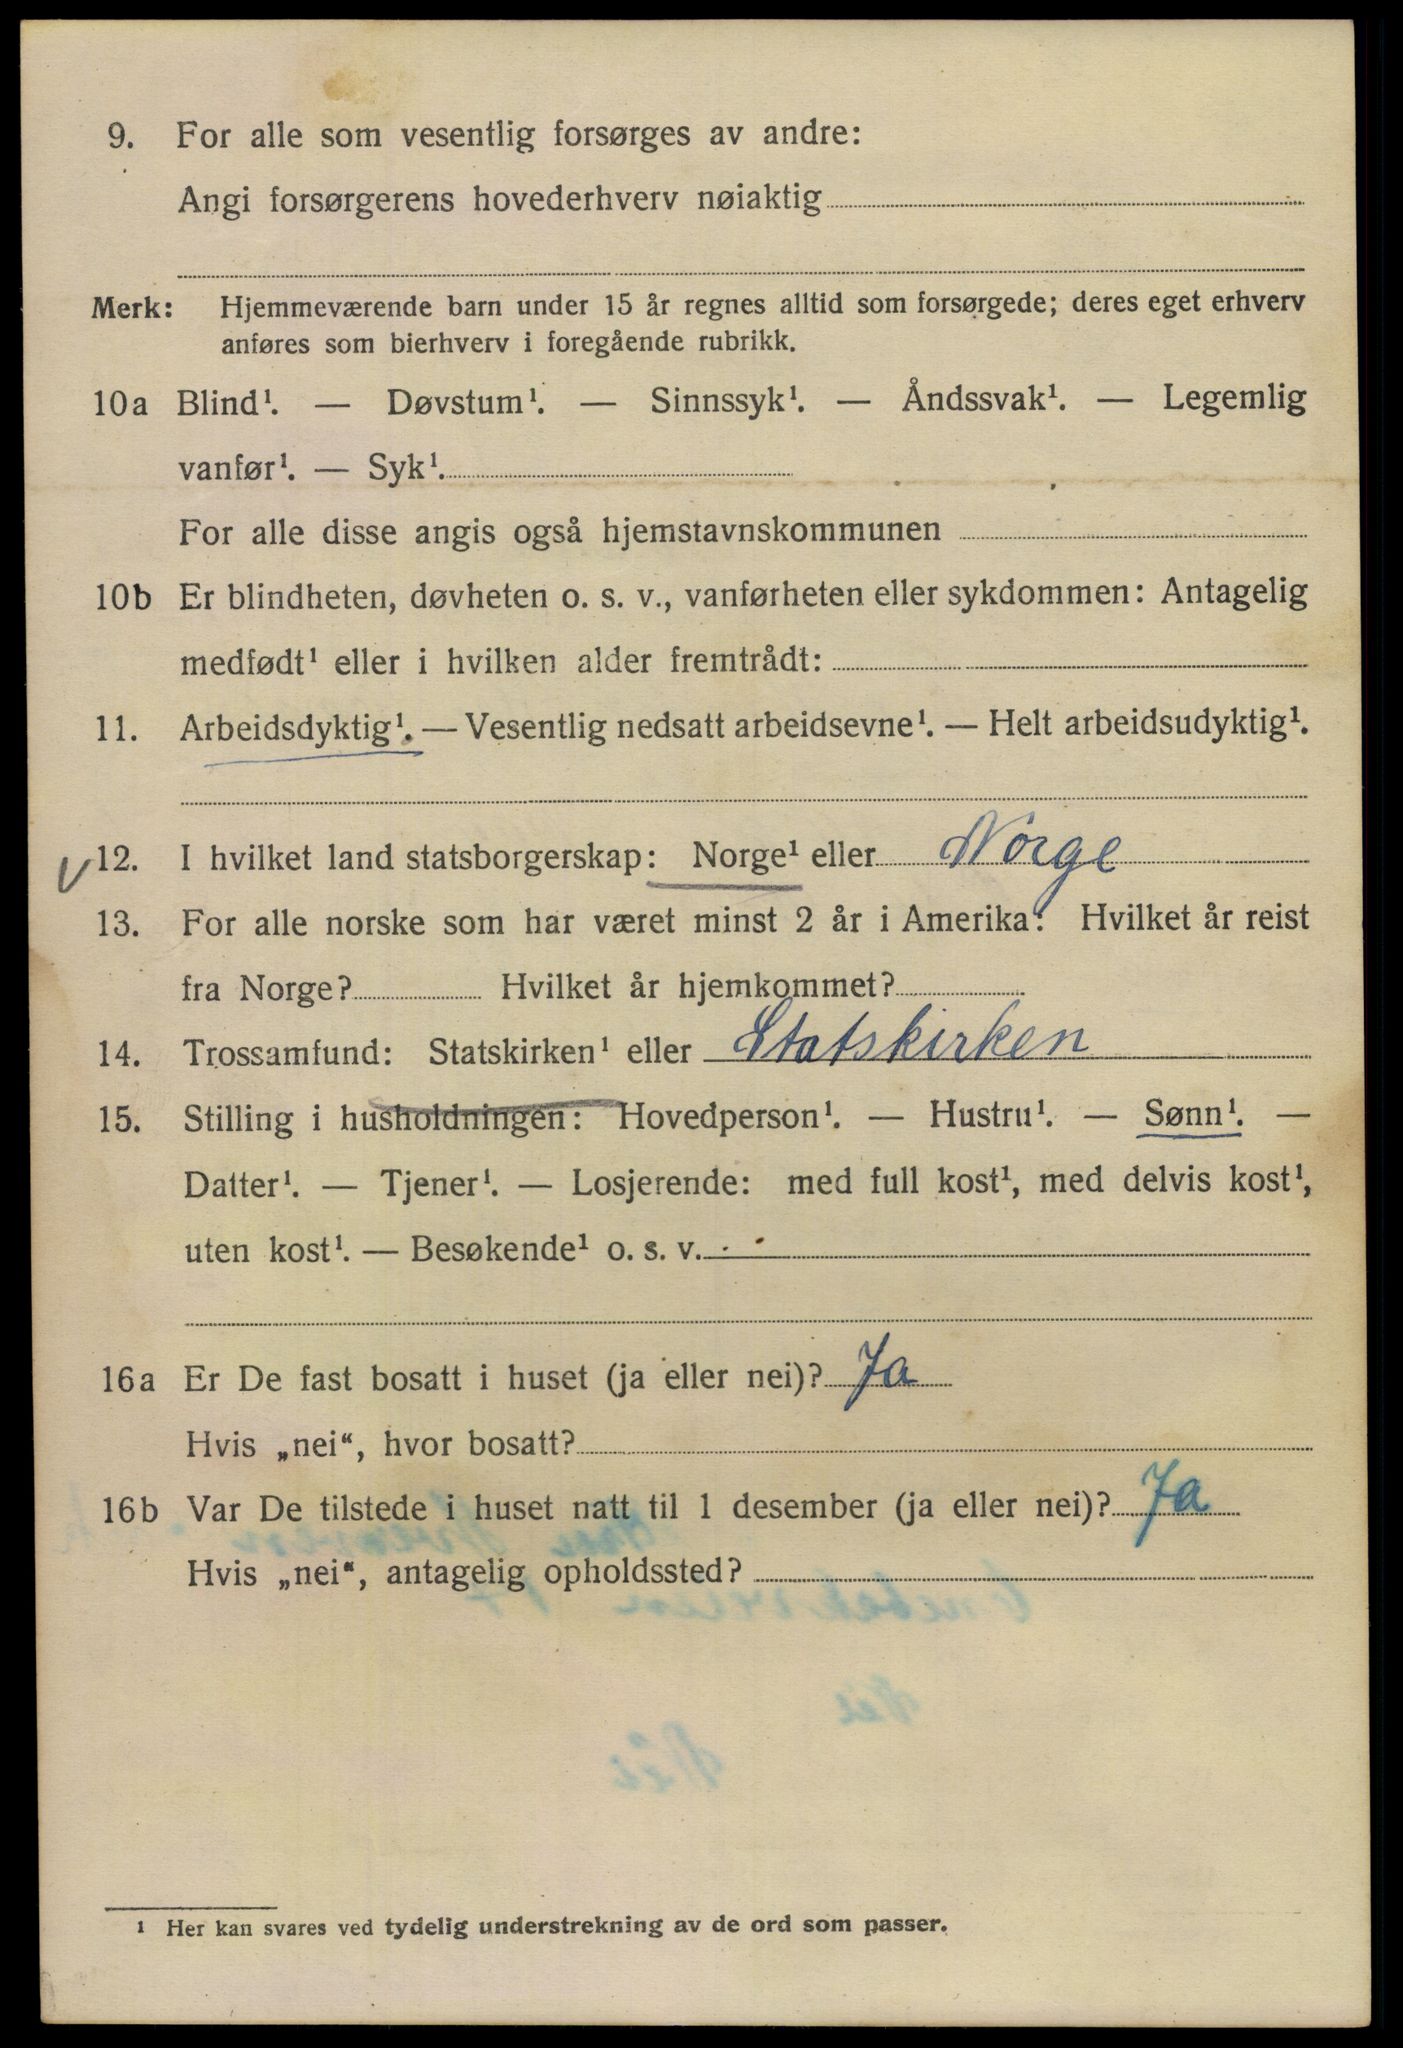 9. For alle som vesentlig forsørges av andre:
Angi forsørgerens hovederhverv nøiaktig
Merk: Hjemmeværende barn under 15 år regnes alltid som forsørgede; deres eget erhverv
anføres som bierhverv i foregående rubrikk.
10a Blind¹. — Døvstum¹. — Sinnssyk¹. — Åndssvak¹. — Legemlig
vanfør¹. — Syk¹.
For alle disse angis også hjemstavnskommunen
10b Er blindheten, døvheten o. s. v., vanførheten eller sykdommen: Antagelig
medfødt¹ eller i hvilken alder fremtrådt:
11. Arbeidsdyktig¹. — Vesentlig nedsatt arbeidsevne¹. — Helt arbeidsudyktig¹.
12. I hvilket land statsborgerskap: Norge¹ eller Norge
13. For alle norske som har været minst 2 år i Amerika: Hvilket år reist
fra Norge? Hvilket år hjemkommet?
14. Trossamfund: Statskirken¹ eller Statskirken
15. Stilling i husholdningen: Hovedperson¹. — Hustru¹. — Sønn¹. —
Datter¹. — Tjener¹. — Losjerende: med full kost¹, med delvis kost¹,
uten kost¹. — Besøkende¹ o. s. v.
16a Er De fast bosatt i huset (ja eller nei)? Ja
Hvis „nei“, hvor bosatt?
16b Var De tilstede i huset natt til 1 desember (ja eller nei)? Ja
Hvis „nei“, antagelig opholdssted?
¹ Her kan svares ved tydelig understrekning av de ord som passer.